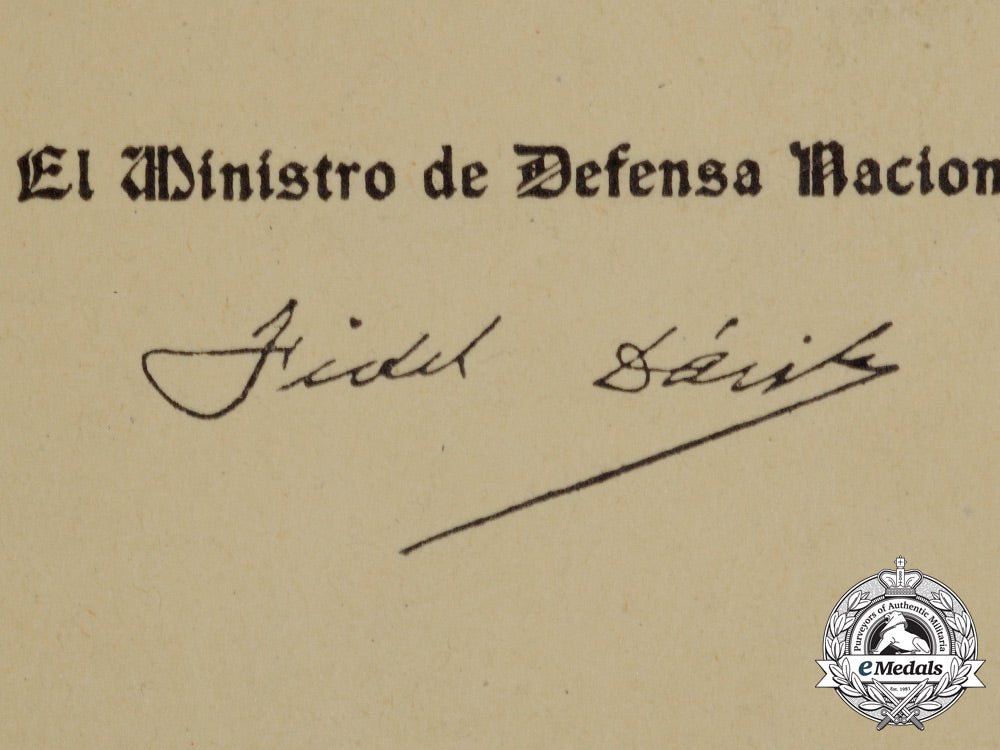 El Ministro de Defensa Nacion
Fidel Dávila
Purveyors of Authentic Militaria
eMedals
Est. 1983